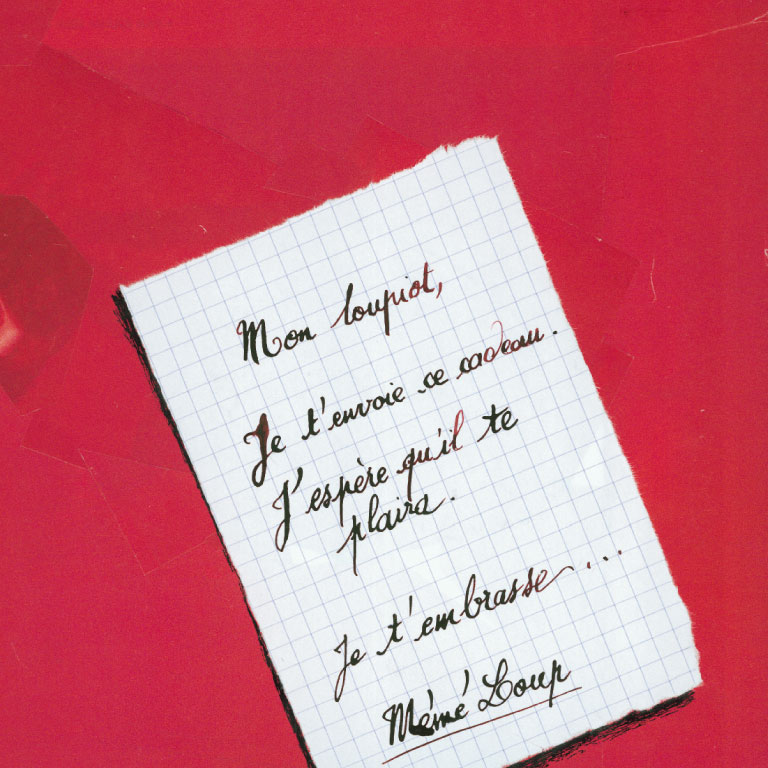 Mon loupiot,
Je t'envoie ce cadeau.
J'espère qu'il te
plaira.
Je t'embrasse...
Mémé Loup